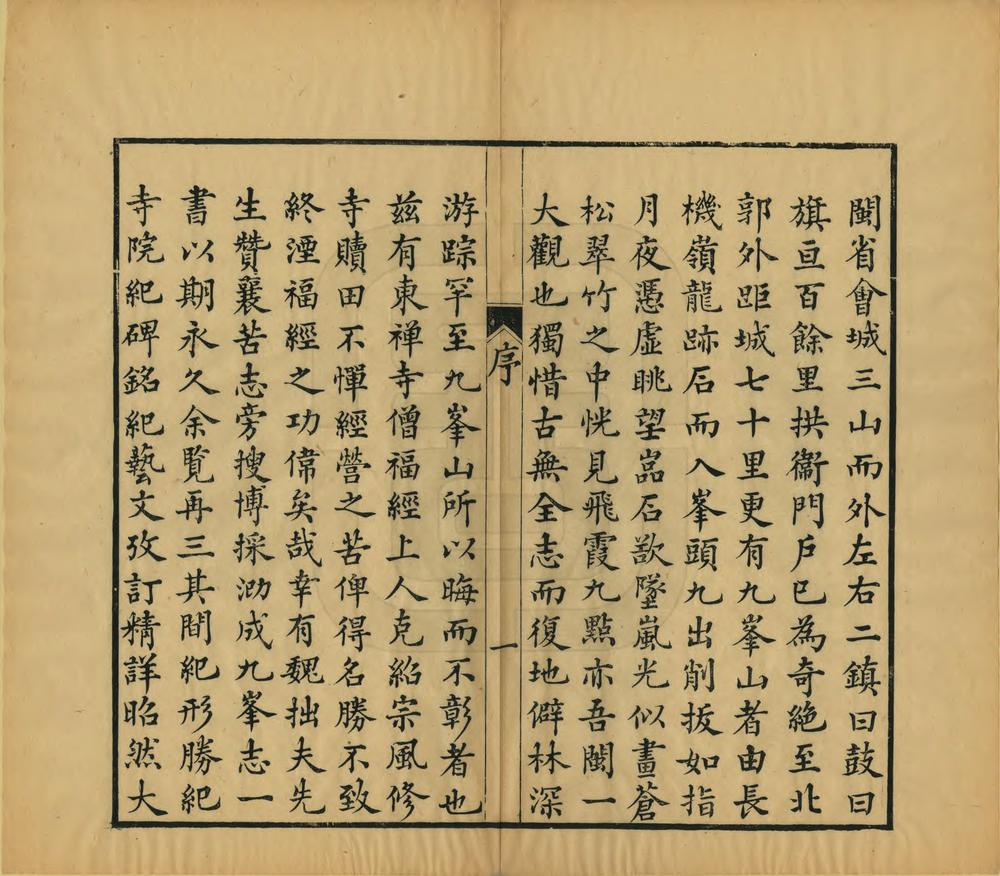 閩省會城三山而外左右二鎮曰鼓曰
旗亘百餘里拱衞門戶已為奇絕至北
郭外距城七十里更有九峯山者由長
機嶺龍跡石而入峯頭九出削拔如指
月夜憑虛眺望嵓石歆墜嵐光似畫蒼
松翠竹之中恍見飛霞九點亦吾閩一
大觀也獨惜古無全志而復地僻林深
序
一
游踪罕至九峯山所以晦而不彰者也
茲有東禪寺僧福經上人克紹宗風修
寺贖田不憚經營之苦俾得名勝不致
終湮福經之功偉矣哉幸有魏拙夫先
生贊襄苦志旁搜博採泐成九峯志一
書以期永久余覽再三其間紀形勝紀
寺院紀碑銘紀藝文攷訂精詳昭然大